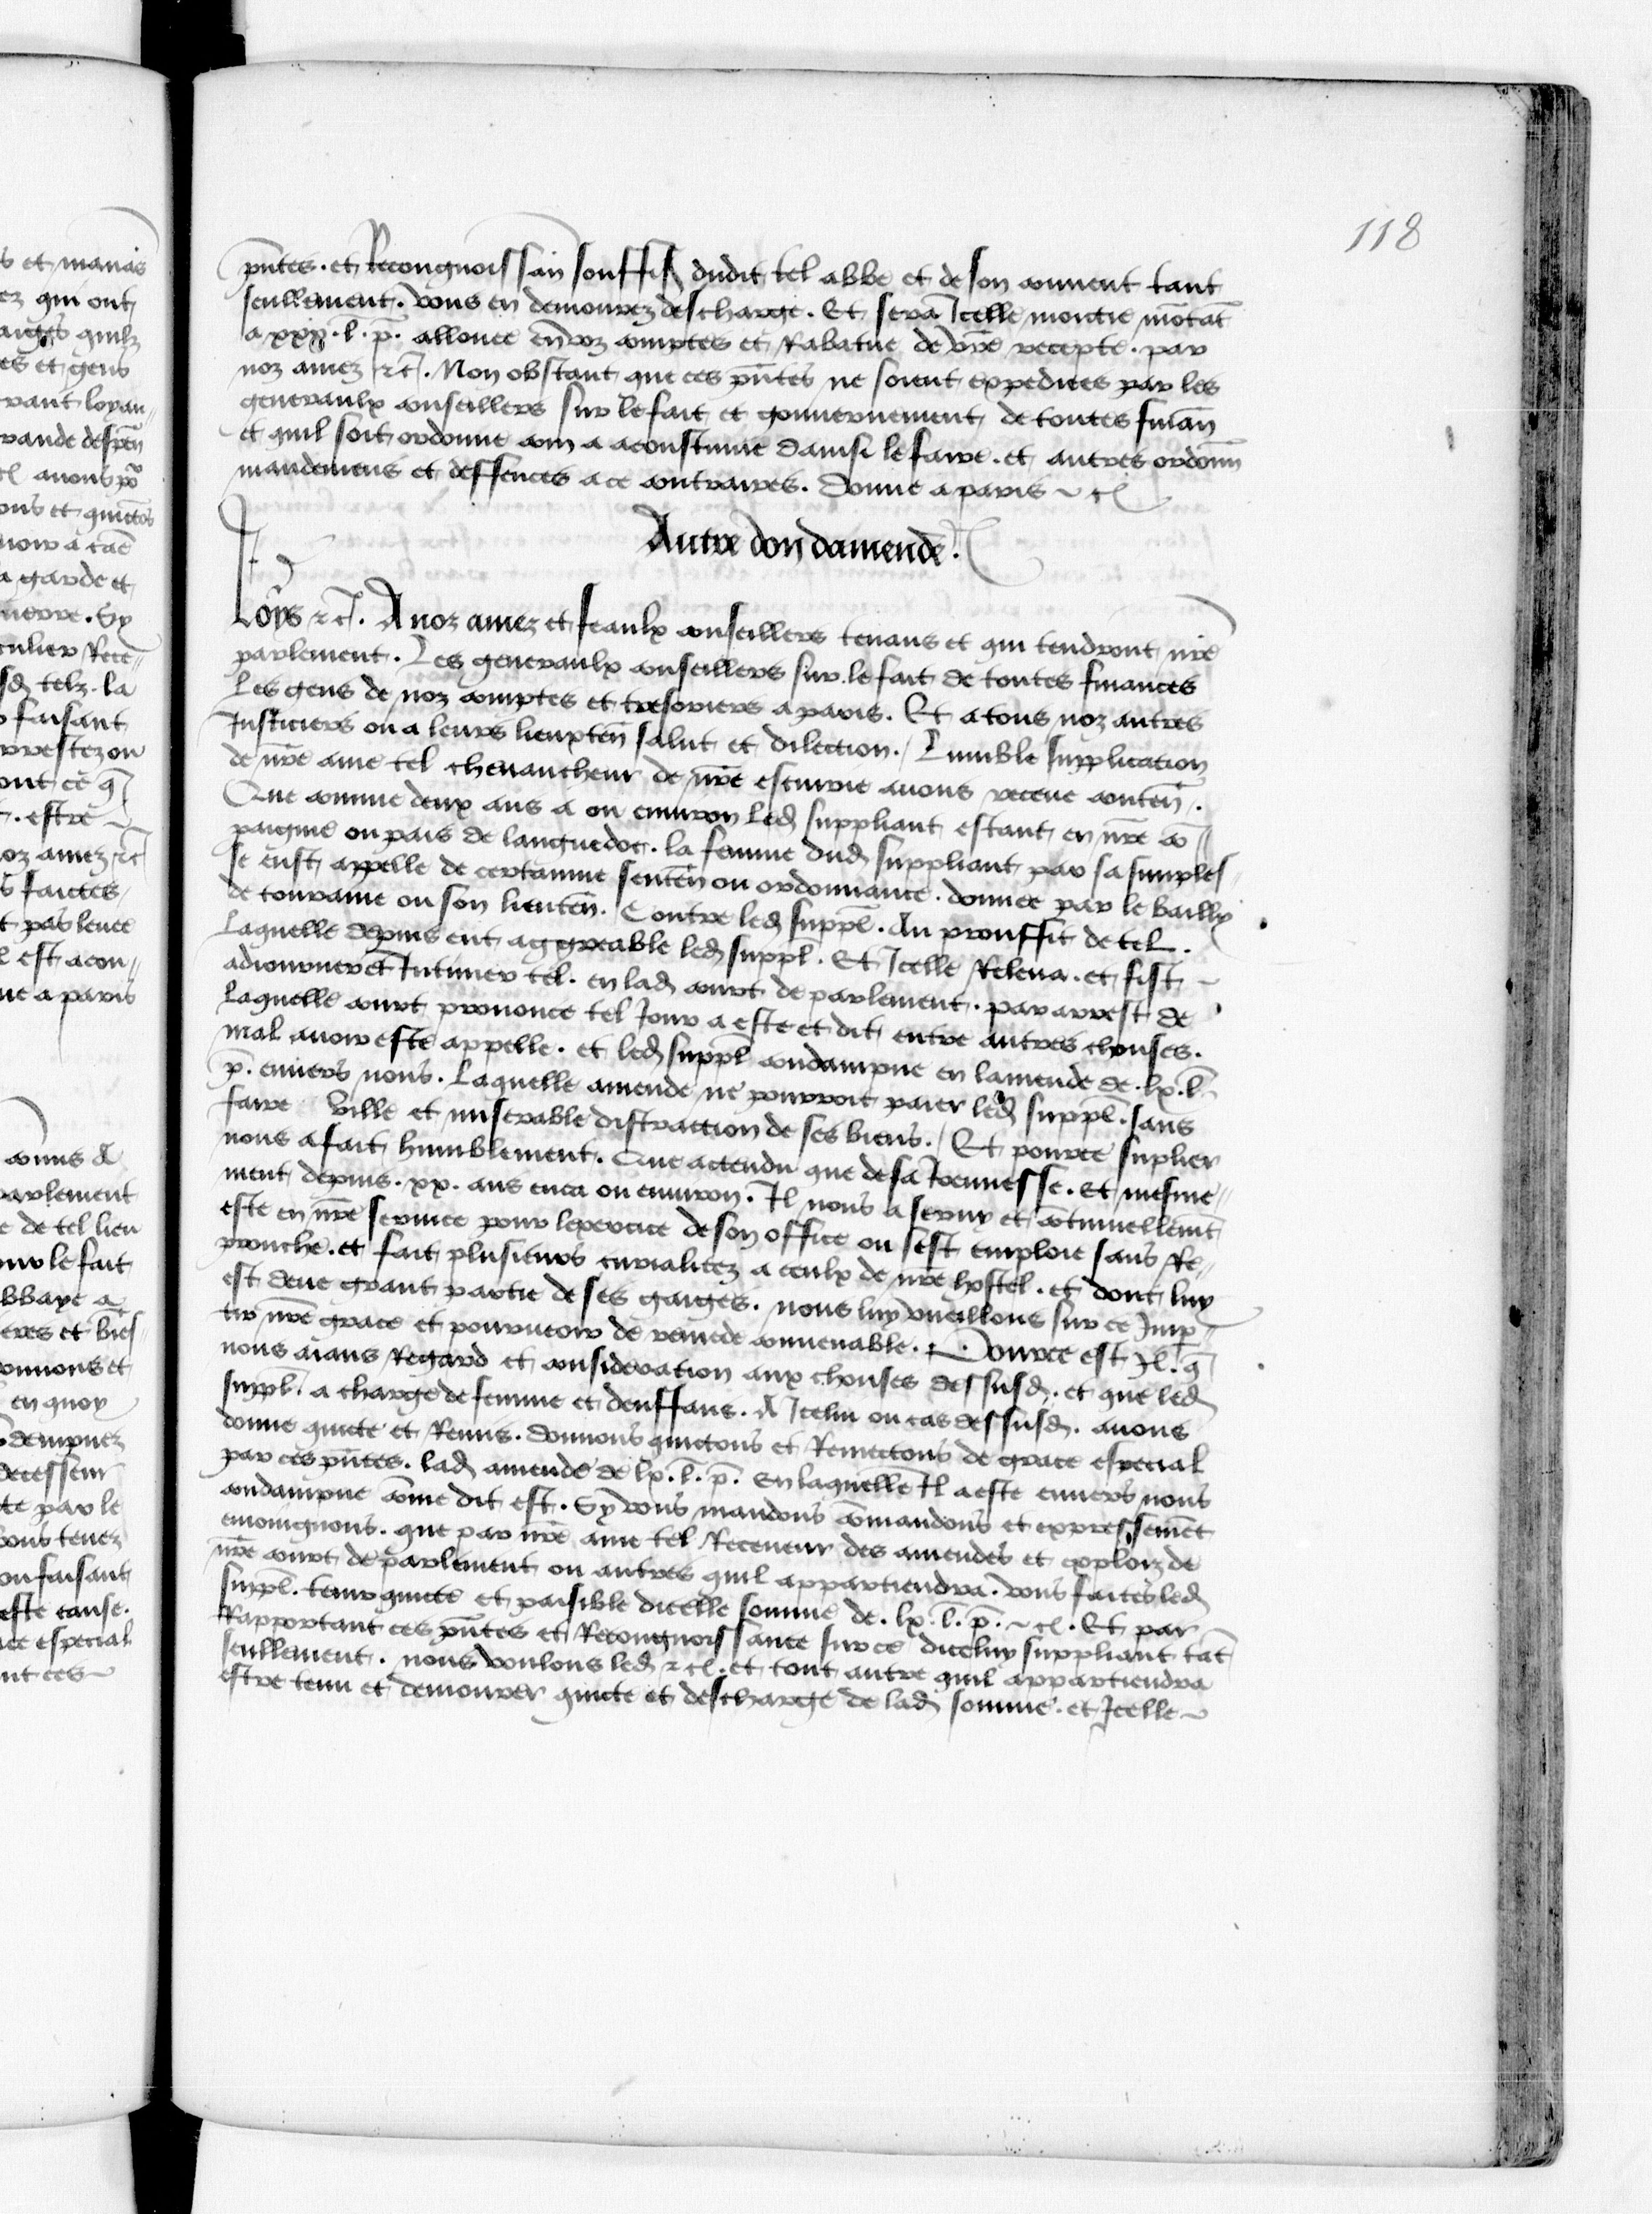 118
pntes. et Recongnoissan souffis dudit tel abbe et de son couuent tant
seullement. vous en demourez descharge. Et sera Icelle moitie motat
a xxx. l. p. allouee en voz comptes et Rabatue de vre recepte. par
noz amez etc. Non obstant que ces pntes ne soient expediees par les
generaulx conseillers sur le fait et gouuernement de toutes finan
et quil soit ordonne com a acoustume dainsi le faire. et autres ordonn
mandemens et deffences a ce contraires. Donne a paris etc
Autre don damende.
Loys etc. A noz amez et feaulx conseillers tenans et qui tendront nre
parlement. Les generaulx conseillers sur le fait de toutes finances
Les gens de noz comptes et tresoriers a paris. Et a tous noz autres
Justiciers ou a leurs lieuxten salut et dilection. Lumble supplication
de nre ame tel cheuaucheur de nre escuirie auons receue conten.
Que comme deux ans a ou enuiron led suppliant estant en nre co
paignie ou pais de languedoc. la femme dud suppliant par sa simples
se eust appelle de certainne senten ou ordonnance. donnee par le bailly
de touraine ou son lieuten. Contre led suppl. Au prouffit de tel.
Laquelle depuis eut aggreable led suppl. Et Icelle Releua. et fist
adiourner et Intimer tel. en lad court de parlement. par arrest de
Laquelle court prononce tel Jour a este et dit entre autres chouses.
mal auoir este appelle. et led suppl condampne en lamende de. lx. l
p. enuers nous. Laquelle amende ne pourroit paier led suppl. sans
faire ville et miserable distraction de ses biens. Et pource suplier
nous a fait humblement. Que actendu que de sa Jeunesse. et mesme
ment depuis. xx. ans enca ou enuiron. Il nous a seruy et cotinuellemt
este en nre seruice pour lexercice de son office ou sest emploie sans Re
prouche. et fait plusieurs curialitez a ceulx de nre hostel. et dont luy
est deue grant partie de ses gaiges. nous luy vueillons sur ce Imp
tir nre grace et pourueoir de remede conuenable. Pource est Il. q
nous aians Regard et consideration aux chouses dessusd. et que led
suppl. a charge de femme et denffans. A Icelui ou cas dessusd. auons
donne quicte et Remis. donnons quictons et Remectons de grace especial
par ces pntes. lad amende de lx. l. p. en laquelle Il a este enuers nous
condampne come dit est. Sy vous mandons comandons et expressemet
enioignons. que par nre ame tel Receueur des amendes et exploiz de
nre court de parlement ou autres quil appartiendra. vous faites led
suppl. tenir quicte et paisible dicelle somme de. lx. l. p. etc. Et par
Rapportant ces pntes et Recongnoissance sur ce diceluy suppliant tat
seullement. nous voulons led etc. et tout autre quil appartiendra
estre tenu et demourer quicte et descharge de lad somme. et Icelle